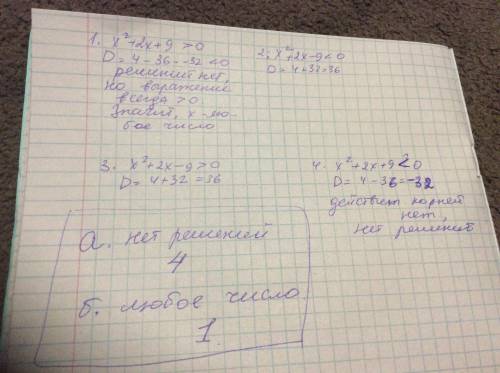 1. x²+2x+9 >0
D = 4 - 36 = -32 <0
решений нет,
но выражение
всегда >0
Значит, x - лю-
бое число
2. x²+2x-9<0
D = 4+32=36
3. x²+2x-9>0
D = 4+32 =36
4. x²+2x+9<0
D = 4-36=-32
действит корней
нет,
нет решений
а. нет решений
4
б. любое число
1